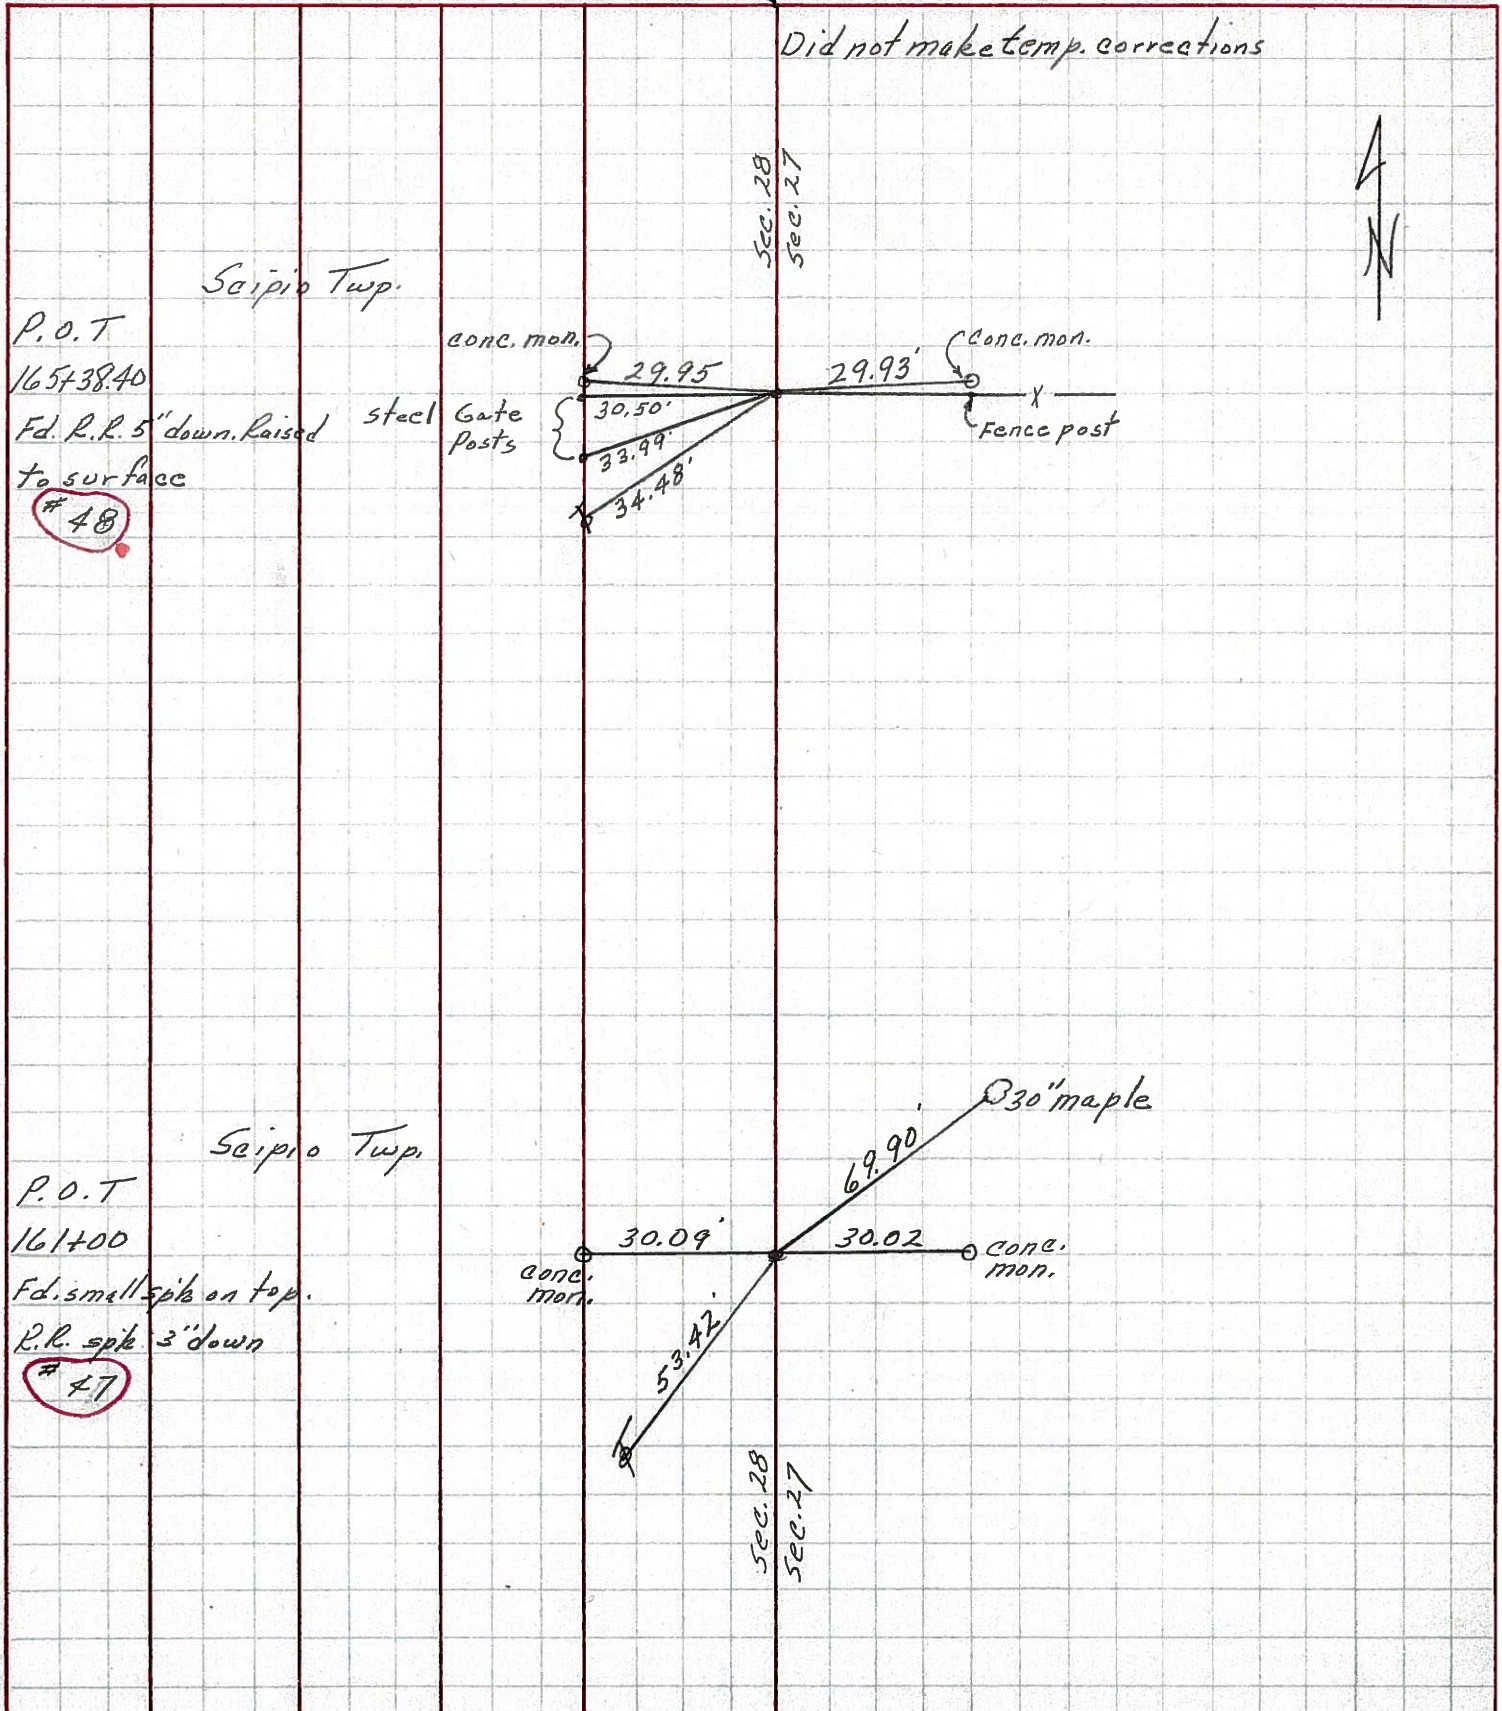 Did not make temp. corrections
Sec. 28
Sec. 27
N
Scipio Twp.
P.O.T
165+38.40
Fd. R.R. 5" down. Raised
to surface
# 48
conc. mon.
29.95
29.93'
conc. mon.
steel Gate
Posts
30.50'
33.99'
34.48'
X
Fence post
30" maple
69.90'
Scipio Twp.
P.O.T
161+00
Fd. small spk on top.
R.R. spk 3" down
# 47
30.09'
30.02
conc.
mon.
conc.
mon.
53.42'
Sec. 28
Sec. 27